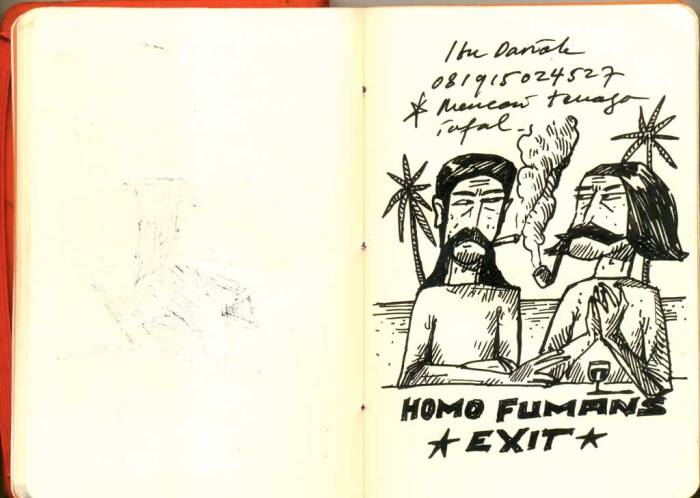 Ibu Danák
081915024527
* Mencari tenaga
HOMO FUMANS
★ EXIT ★